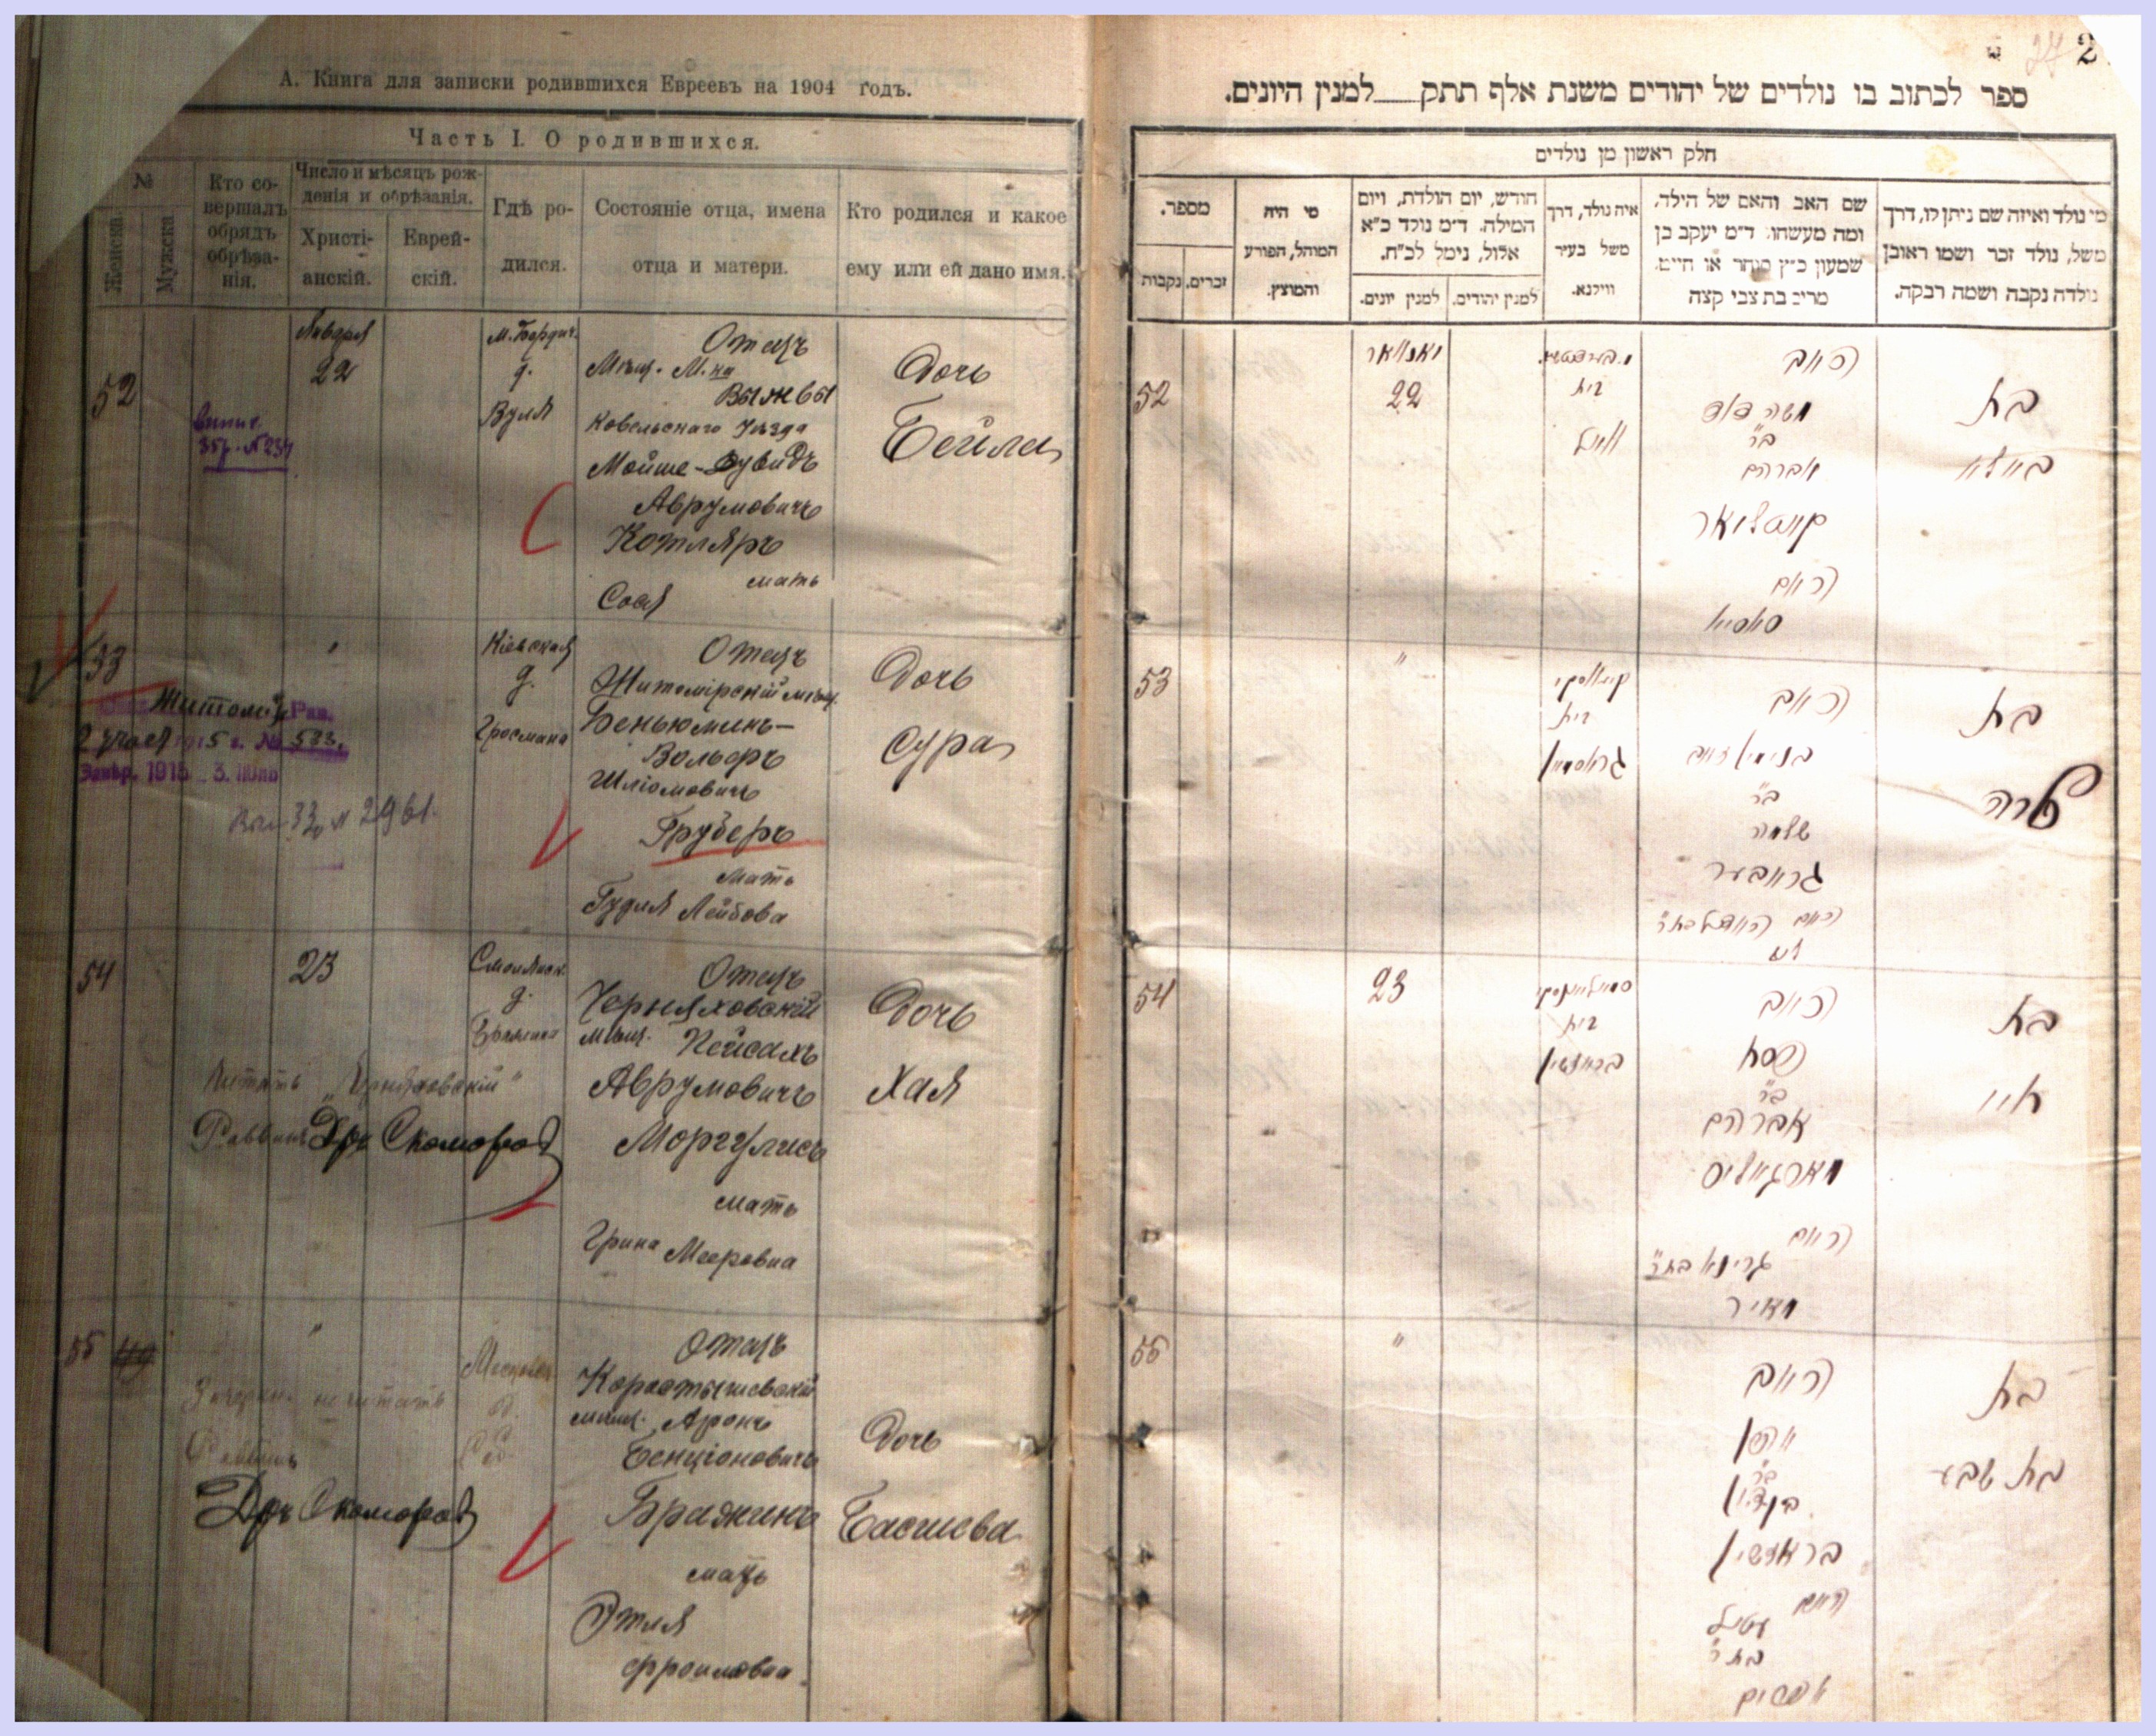 А. Книга для записки родившихся Евреевъ на 1904 годъ.
Часть I. О родившихся.
№
Женска
Мужска
Кто со-
вершалъ
обрядъ
обрѣза-
нія.
Число и мѣсяцъ рож-
денія и обрѣзанія.
Христі-
анскій.
Еврей-
скій.
Гдѣ ро-
дился.
Состояніе отца, имена
отца и матери.
Кто родился и какое
ему или ей дано имя.
52
Января
22
М. Бердич.
д.
Вуля
Отецъ
Мѣщ. М. ка
Выжвы
Ковельскаго уѣзда
Мойше-Дувидъ
Аврумовичъ
Котляръ
мать
Сося
Дочь
Бейла
53
"
Кіевская
д.
Гросмана
Отецъ
Житомірскій мѣщ.
Беньюминъ-
Вольфъ
Шліомовичъ
Груберъ
мать
Гудля Лейбова
Дочь
Сура
1915 г. № 533.
1915 3. Июнь
№ 2961.
54
23
Смолянск.
д.
Отецъ
Черняховскій
мѣщ. Пейсахъ
Аврумовичъ
Моргулисъ
мать
Грина Мееровна
Дочь
Хая
Читать „Черняховскій"
Раввинъ Дръ Скоморовскій
55
"
д.
Отецъ
Коростышевскій
мѣщ. Аронъ
Бенціоновичъ
Бражинъ
мать
Этля
Фроимовна
Дочь
Басшева
не читать
Раввинъ
Дръ Скоморовскій
ספר לכתוב בו נולדים של יהודים משנת אלף תתק__למנין היונים.
חלק ראשון מן נולדים
מספר.
זכרים.
נקבות
מי היה
המוהל, הפורע
והמוצץ.
חודש, יום הולדת, ויום
המילה. ד"מ נולד כ"א
אלול, נימל לכ"ח.
למנין יונים.
למנין יהודים.
איה נולד, דרך
משל בעיר
ווילנא.
שם האב והאם של הילד.
ומה מעשהו: ד"מ יעקב בן
שמעון כ"ץ סוחר או חייט.
מרים בת צבי קצה
מי נולד ואיזה שם ניתן לו, דרך
משל, נולד זכר ושמו ראובן
נולדה נקבה ושמה רבקה.
52
יאנוואר
22
בית
וויל
האב
משה דוד
ב"ר
אברהם
קוטליאר
האם
סאסיא
בת
ביילא
53
"
קיעווסקי
בית
גראסמאן
האב
בנימין זאב
ב"ר
שלמה
גרובער
האם הוודל בת ר'
ליב
בת
שרה
54
23
בית
האב
פסח
ב"ר
אברהם
מארגוליס
האם
גרינא בת ר'
מאיר
בת
חיי
55
"
האב
אהרן
ב"ר
בן ציון
בראזשין
האם
עטיל
בת ר'
אפרים
בת
בת שבע